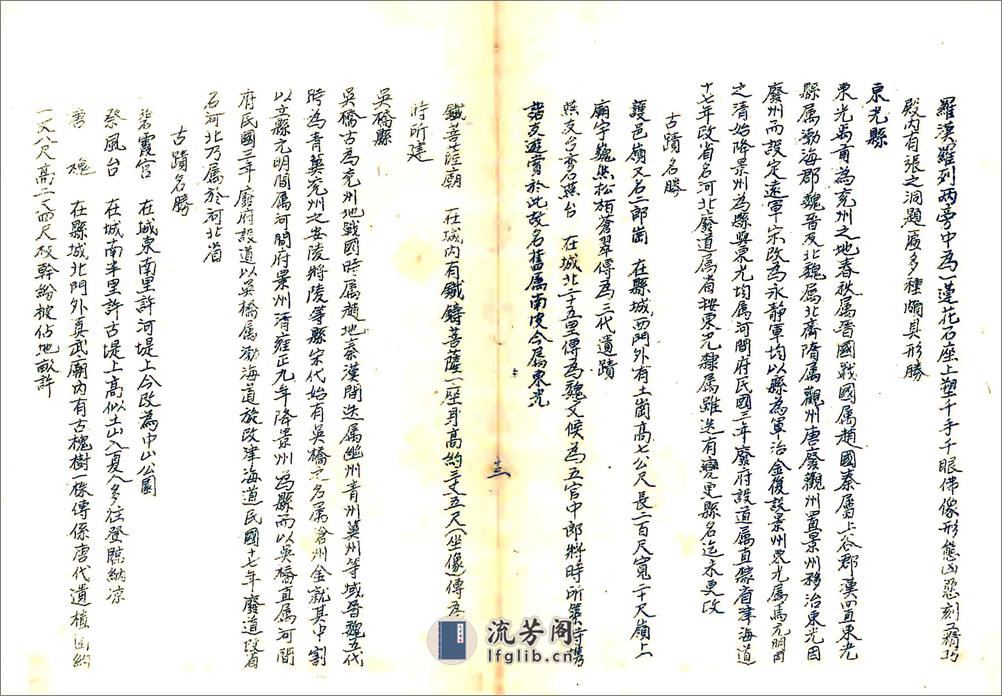 羅漢羅列兩旁中為一蓮花石座上塑千手千眼佛像形態凶惡刻工精巧
殿内有張之洞題廠多種頗具形勝
東光縣
東光禹貢為兗州之地春秋属晋國戰國属趙國秦屬上谷郡漢置東光
縣属渤海郡魏晋及北魏属北齊隋属觀州唐廢觀州置景州移治東光因
廢州而設定遠軍宋改為永静軍均以縣為軍治金復設景州東光属焉元明因
之清始降景州為縣與東光均属河間府民國三年廢府設道属直隸省津海道
十七年改省名河北廢道属省按東光隸属雖迭有變更縣名迄未更改
古蹟名勝
護邑嶺又名二郎崗 在縣城西門外有土崗高七公尺長二百尺寬二十尺嶺上
廟宇巍然松柏蒼翠傳為三代遺蹟
燕友台亦名燕台 在城北二十五里傳為魏文候為五官中郎將時所築時携
諸友遊賞於此故名舊属南皮今属東光
十三
鐵菩薩廟 在城内有鐵鑄菩薩一座身高約三丈五尺(坐像)傳為
時所建
吳橋縣
吳橋古為兗州地戰國時属趙地秦漢間迭属幽州青州冀州等域晉魏五代
時為青冀兗州之安陵將陵等縣宋代始有吳橋之名属滄州金就其中割
以立縣元明間属河間府景州清雍正九年降景州為縣而以吳橋直属河間
府民國三年廢府設道以吳橋属渤海道旋改津海道民國十七年廢道改省
名河北乃属於河北省
古蹟名勝
碧霞宮 在城東南里許河堤上今改為中山公園
祭風台 在城南半里許古堤上高似土山入夏人多往登臨納凉
唐槐 在縣城北門外真武廟内有古槐樹一株傳係唐代遺植囗約
一丈八尺高二丈四尺枝幹紛披佔地畝許
流芳阁
lfglib.cn